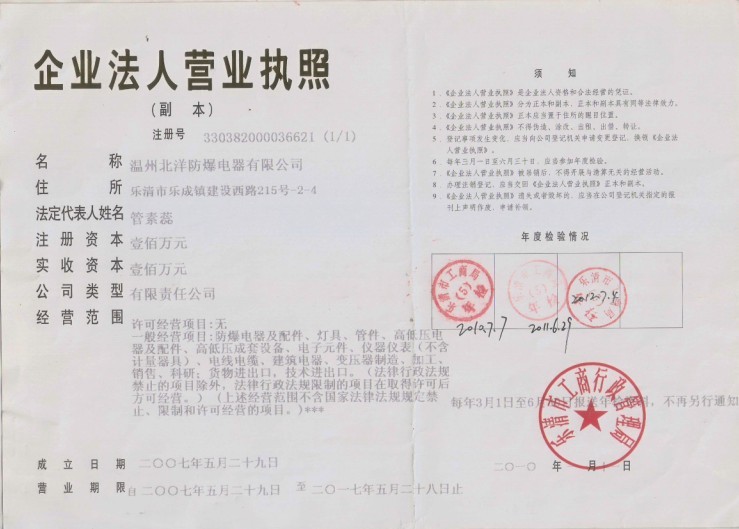 企业法人营业执照
(副 本)
注册号 330382000036621 (1/1)
名 称 温州北洋防爆电器有限公司
住 所 乐清市乐成镇建设西路215号-2-4
法定代表人姓名 管素蕊
注册资本 壹佰万元
实收资本 壹佰万元
公司类型 有限责任公司
经营范围
许可经营项目:无
一般经营项目:防爆电器及配件、灯具、管件、高低压电
器及配件、高低压成套设备、电子元件、仪器仪表(不含
计量器具)、电线电缆、建筑电器、变压器制造、加工、
销售、科研;货物进出口、技术进出口。(法律行政法规
禁止的项目除外,法律行政法规限制的项目在取得许可后
方可经营。)(上述经营范围不含国家法律法规规定禁
止、限制和许可经营的项目。)***
成立日期 二〇〇七年五月二十九日
营业期限 自二〇〇七年五月二十九日 至二〇一七年五月二十八日止
须 知
1.《企业法人营业执照》是企业法人资格和合法经营的凭证。
2.《企业法人营业执照》分为正本和副本,正本和副本具有同等法律效力。
3.《企业法人营业执照》正本应当置于住所的醒目位置。
4.《企业法人营业执照》不得伪造、涂改、出租、出借、转让。
5.登记事项发生变化,应当向公司登记机关申请变更登记,换领《企业法
人营业执照》。
6.每年三月一日至六月三十日,应当参加年度检验。
7.《企业法人营业执照》被吊销后,不得开展与清算无关的经营活动。
8.办理注销登记,应当交回《企业法人营业执照》正本和副本。
9.《企业法人营业执照》遗失或者毁坏的,应当在公司登记机关指定的报
刊上声明作废,申请补领。
年度检验情况
乐清市工商局
(5)
年检
2010.7.7
2011.6.29
2012.7.4
每年3月1日至6月 报送年检 ,不再另行通知
乐清市工商行政管理局
二〇一〇 年 月 日